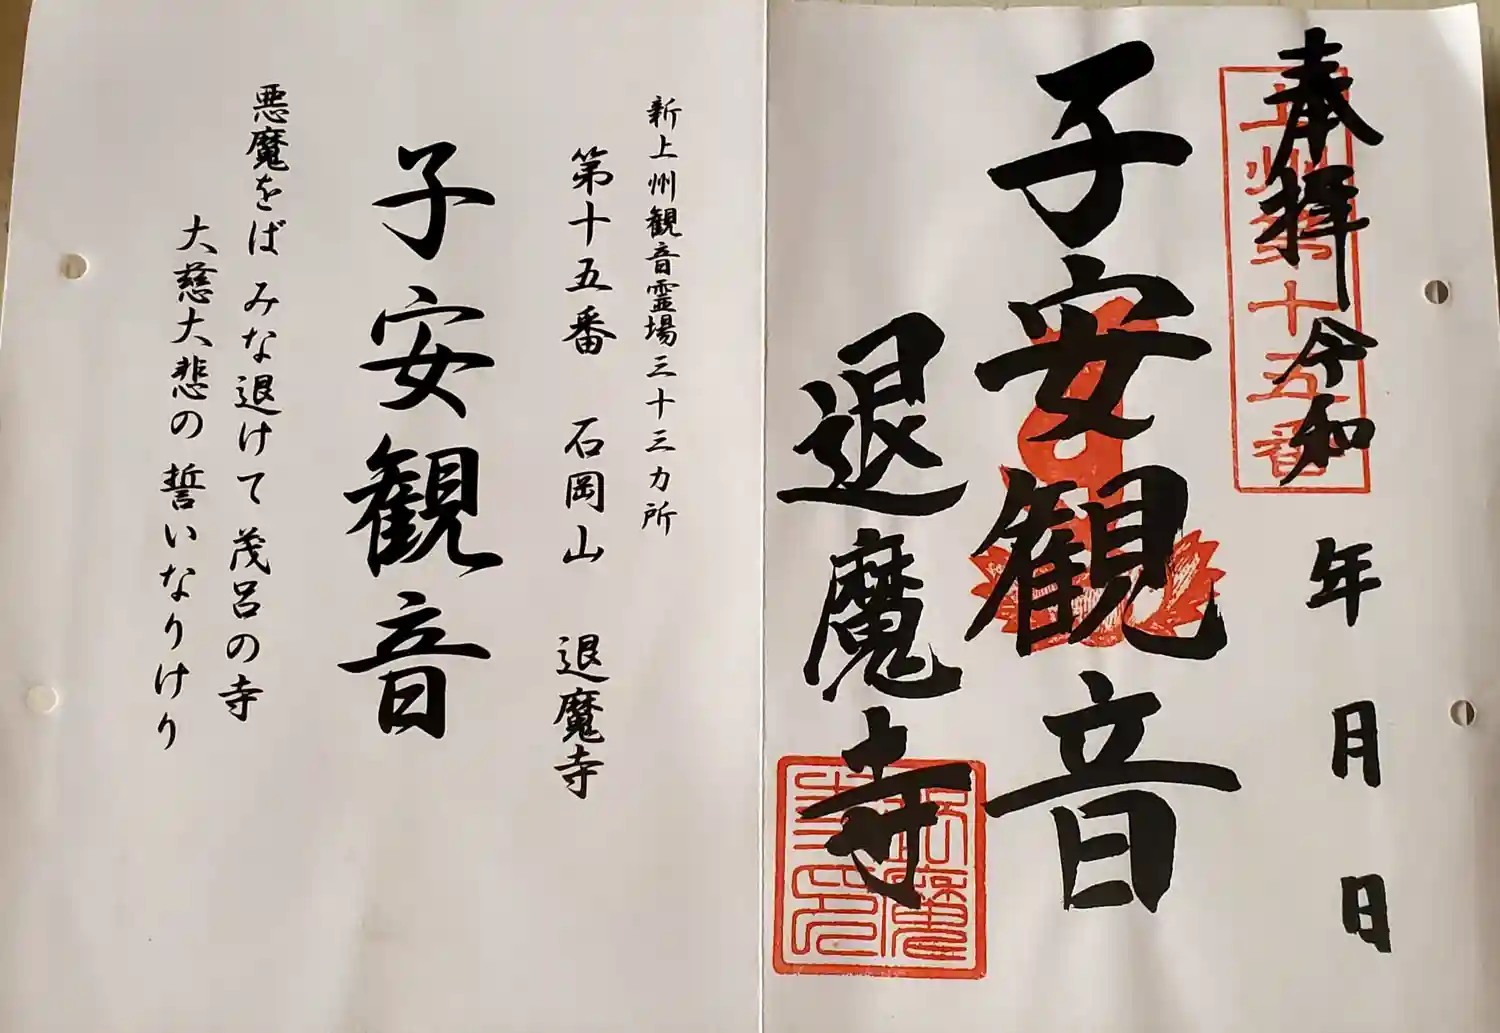 奉拝 令和 年 月 日
上州第十五番
子安観音
退魔寺
退魔寺印
新上州観音霊場三十三カ所
第十五番 石岡山 退魔寺
子安観音
悪魔をば みな退けて 茂呂の寺
大慈大悲の 誓いなりけり